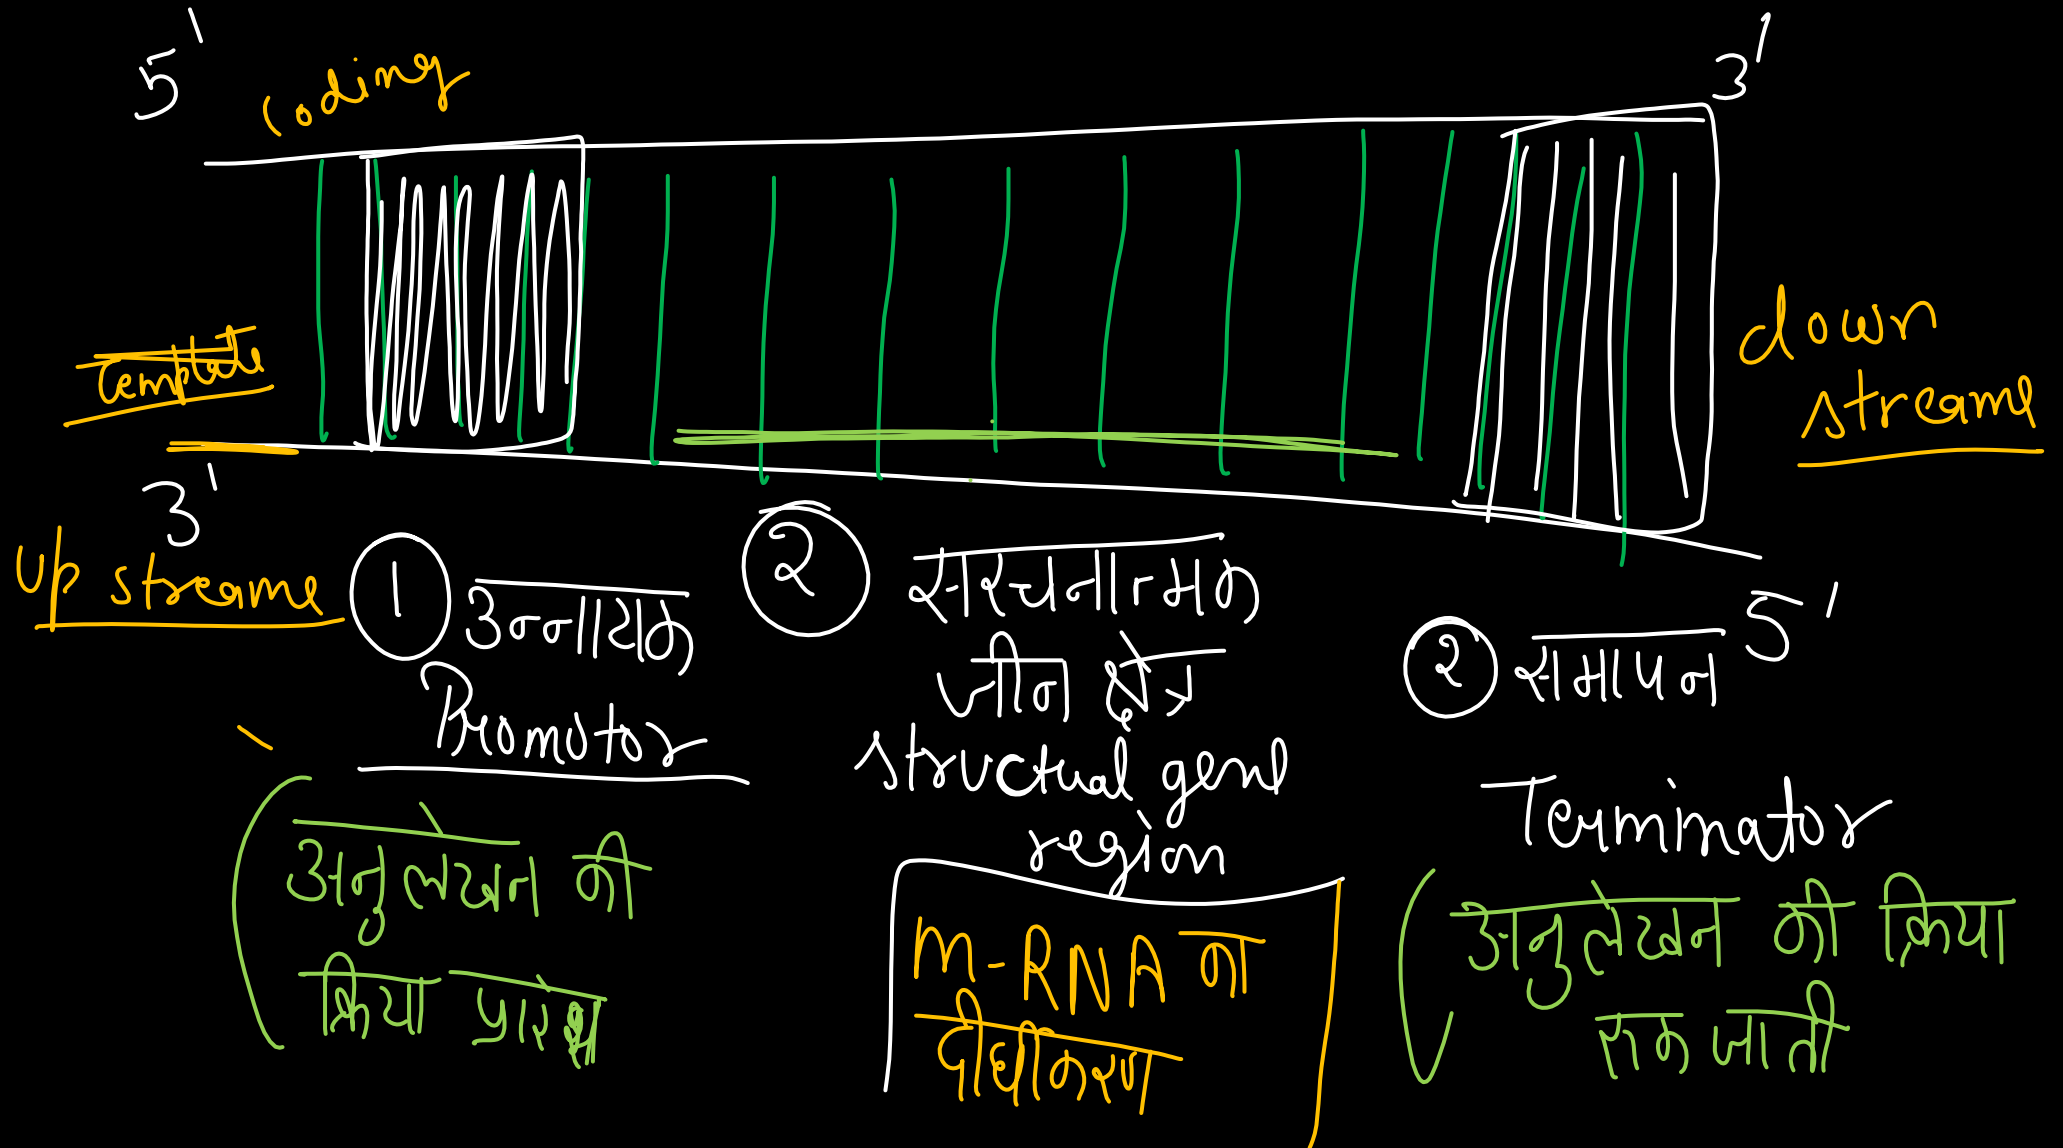 5'
coding
3'
Template
3'
up streame
down
streame
5'
1 उन्नायक
Promotor
अनुलेखन की
क्रिया प्रारम्भ
२ संरचनात्मक
जीन क्षेत्र
structual gene
region
m-RNA का
दीर्घीकरण
२ समापन
Terminator
अनुलेखन की क्रिया
रुक जाती